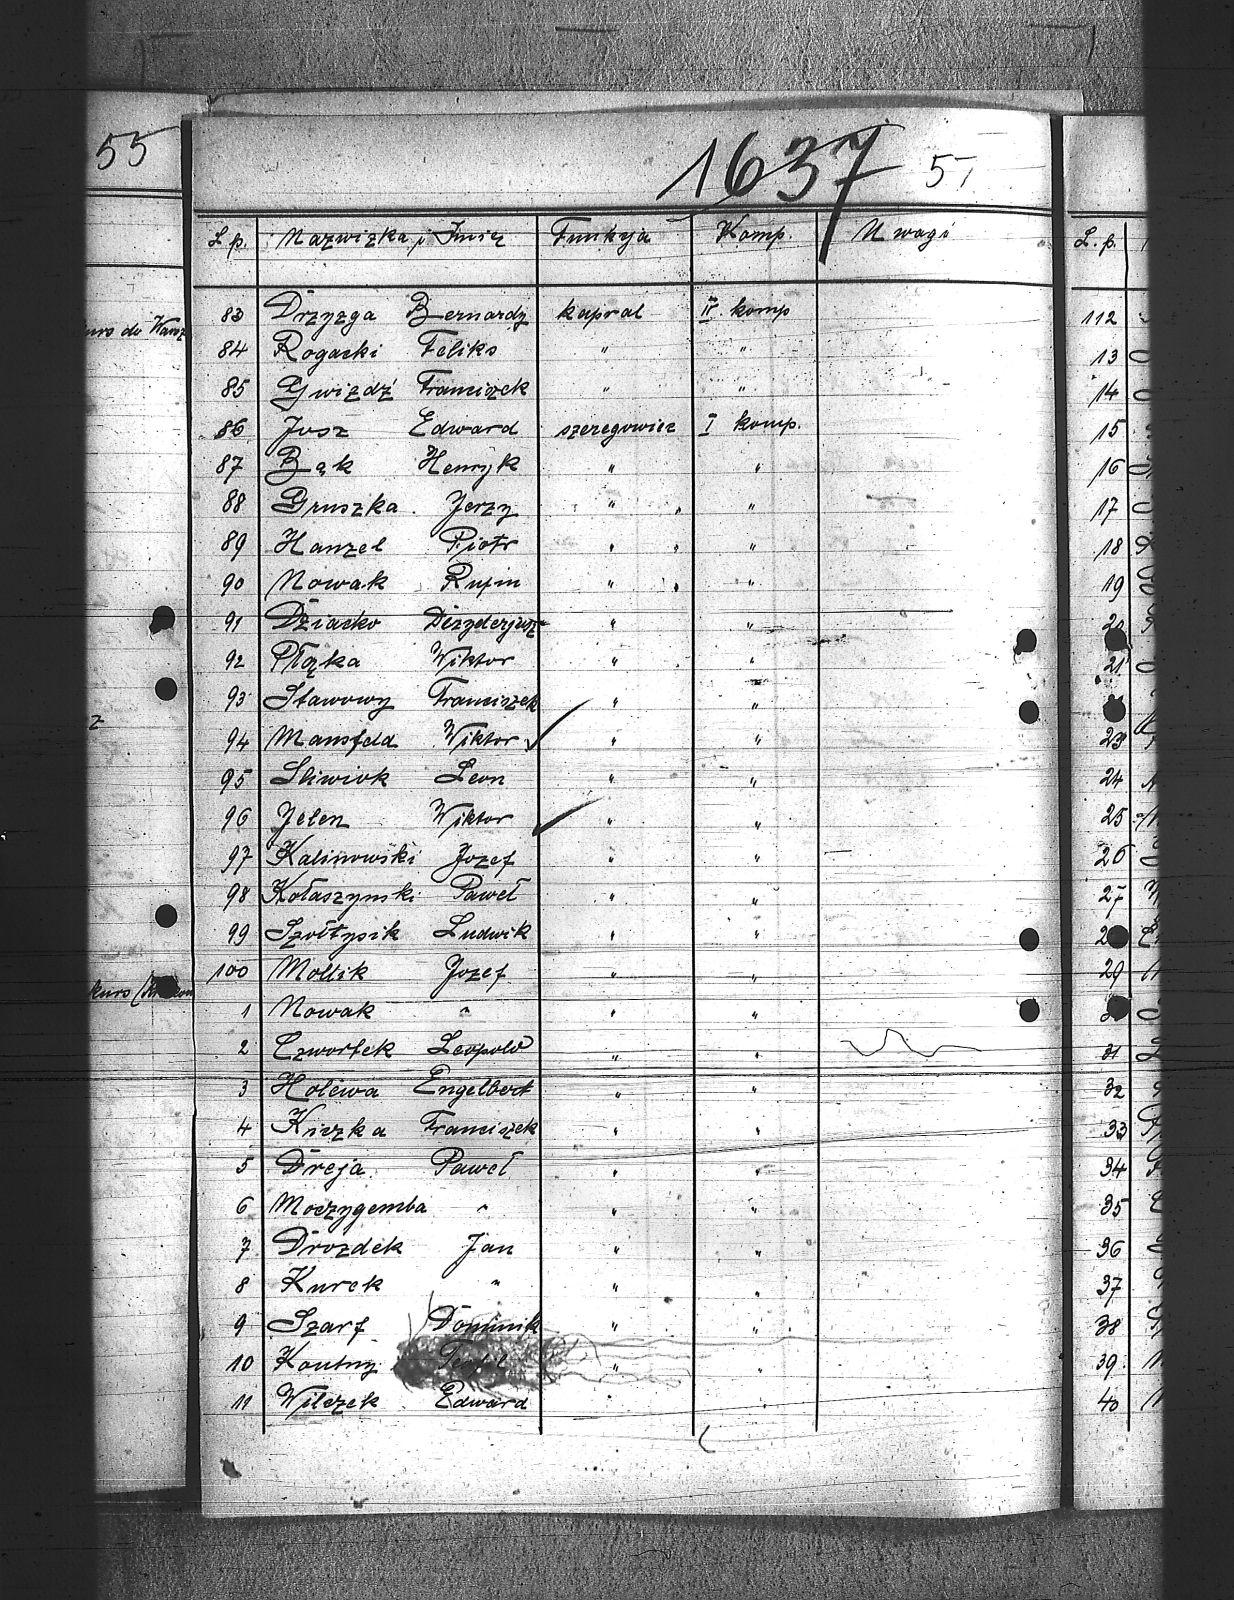 55
1637 57
L.p. Nazwizka i Imię Funkcja Komp. Uwagi
83 Drzyzga Bernardy kapral IV. komp
84 Rogacki Feliks " "
85 Gwizdź Franciszek " "
86 Josz Edward szeregowiec I komp.
87 Bąk Henryk " "
88 Gruszka Jerzy " "
89 Hanzel Piotr " "
90 Nowak Rufin " "
91 Dziacko Dezyderjusz " "
92 Płązka Wiktor " "
93 Stawowy Franciszek " "
94 Mansfeld Wiktor " "
95 Sliwiok Leon " "
96 Jelen Wiktor " "
97 Kalinowski Jozef " "
98 Kołaszynski Paweł " "
99 Szołtysik Ludwik " "
100 Mollik Jozef " "
1 Nowak " " "
2 Czwortek Leopold " "
3 Holewa Engelbert " "
4 Kiczka Franciszek " "
5 Dreja Paweł " "
6 Moczygemba " " "
7 Drozdek Jan " "
8 Kurek " " "
9 Szarf Dominik " "
10 Koutny " "
11 Wilczek Edward " "
L.p.
112
13
14
15
16
17
18
19
21
23
24
25
26
27
29
31
32
33
34
35
36
37
38
39
40